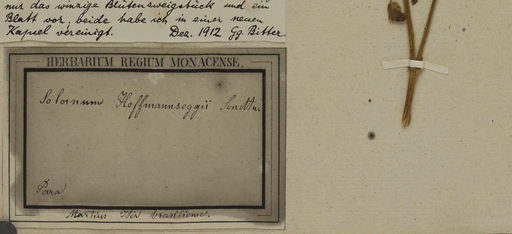 nur das winzige Blütenzweigstück und ein
Blatt vor, beide habe ich in einer neuen
Kapsel vereinigt. Dez. 1912 Gg. Bitter
HERBARIUM REGIUM MONACENSE.
Solanum Hoffmannseggii Sendtn.
Para
Martius Iter brasiliense.